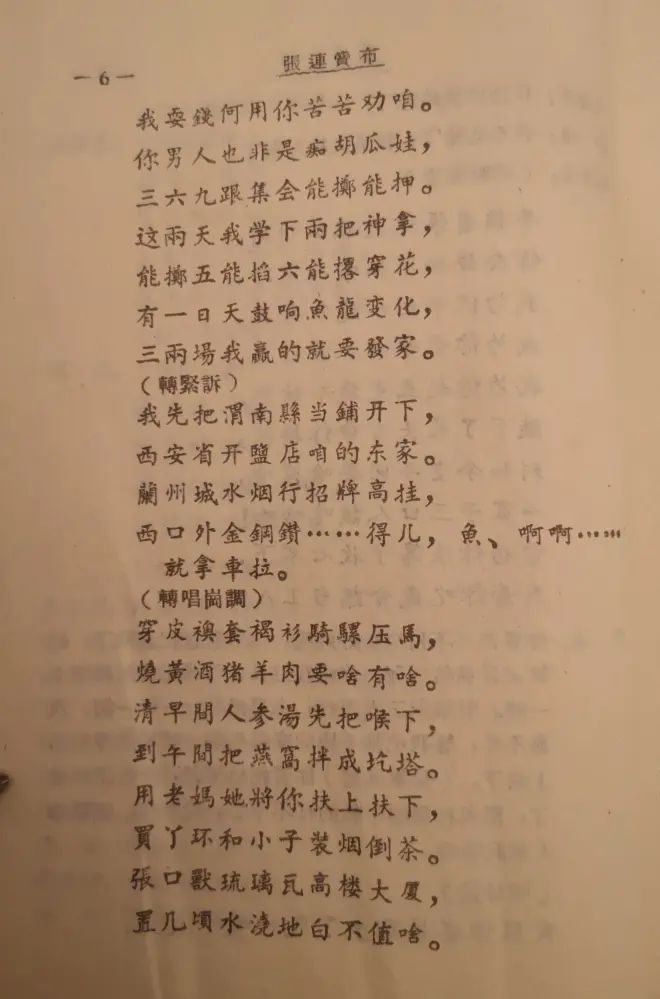 張連賣布
—6—
我耍錢何用你苦苦劝咱。
你男人也非是痴胡瓜娃，
三六九跟集会能擲能押。
这兩天我学下兩把神拿，
能擲五能掐六能撂穿花，
有一日天鼓响魚龍变化，
三兩場我贏的就要發家。
（轉緊訴）
我先把渭南縣当鋪开下，
西安省开鹽店咱的东家。
蘭州城水烟行招牌高挂，
西口外金鋼鑽……得儿，魚、啊啊……
就拿車拉。
（轉唱崗調）
穿皮襖套褐衫騎騾压馬，
燒黃酒猪羊肉要啥有啥。
清早間人参湯先把喉下，
到午間把燕窩拌成圪塔。
用老媽她將你扶上扶下，
買丫环和小子裝烟倒茶。
張口獸琉璃瓦高楼大厦，
置几頃水澆地白不值啥。